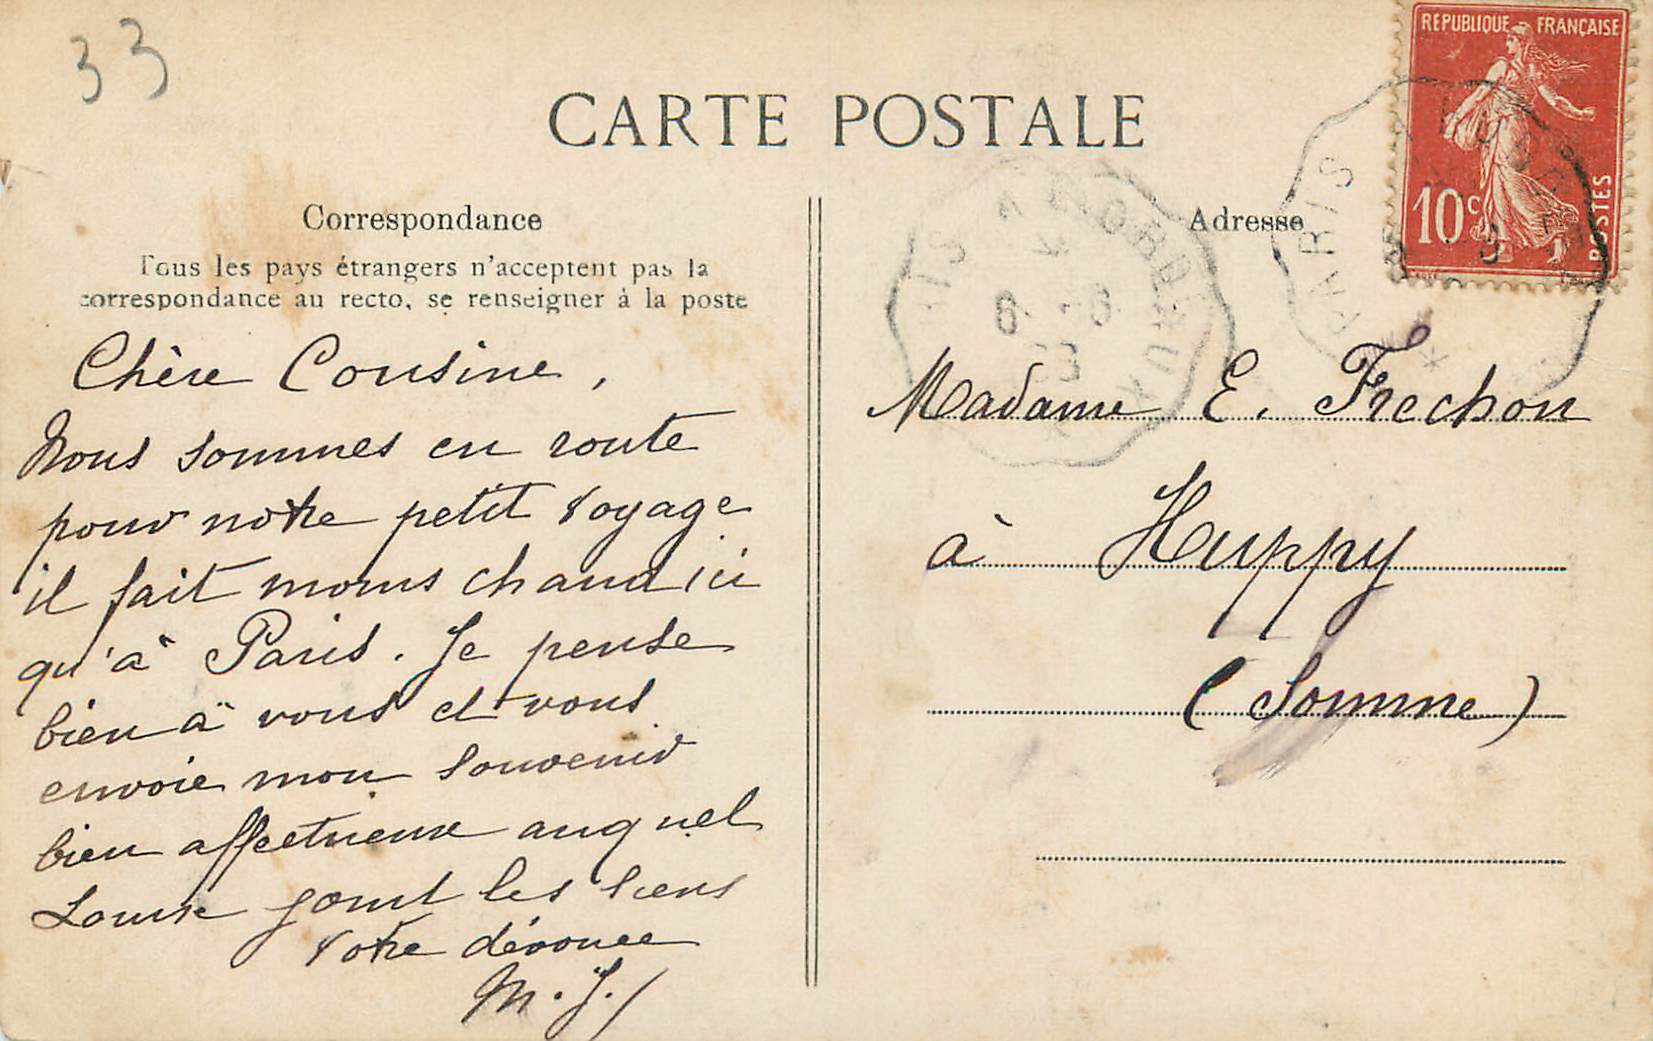 33
CARTE POSTALE
REPUBLIQUE FRANÇAISE
10c
POSTES
Correspondance
Tous les pays étrangers n'acceptent pas la
correspondance au recto, se renseigner à la poste
Adresse
PARIS
BORDEAUX
Chère Cousine,
Nous sommes en route
pour notre petit voyage
il fait moins chaud ici
qu'à Paris. Je pense
bien à vous et vous
envoie mon souvenir
bien affectueux auquel
Louise joint les siens
Votre dévouée
M. J.
Madame E. Frechon
à Huppy
(Somme)